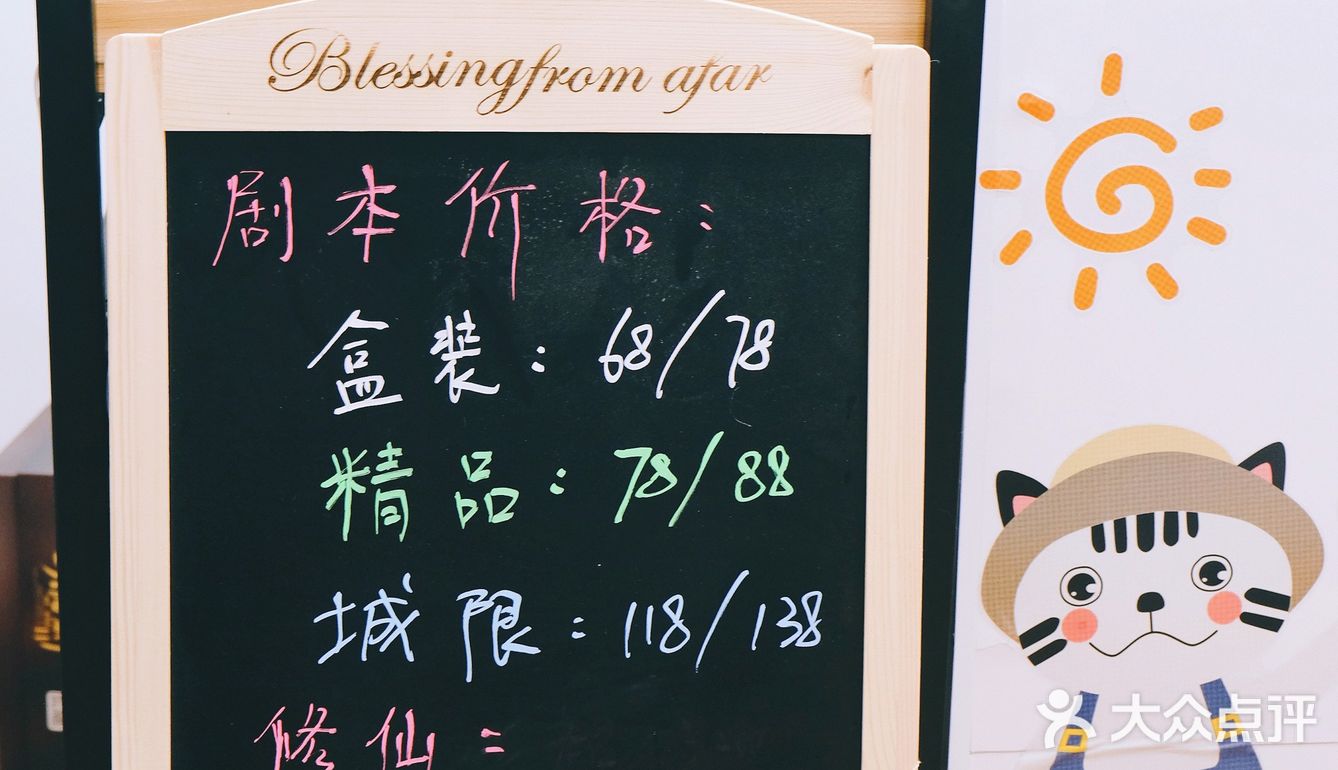 Blessing from afar
剧本价格：
盒装：68/78
精品：78/88
城限：118/138
修仙：
大众点评